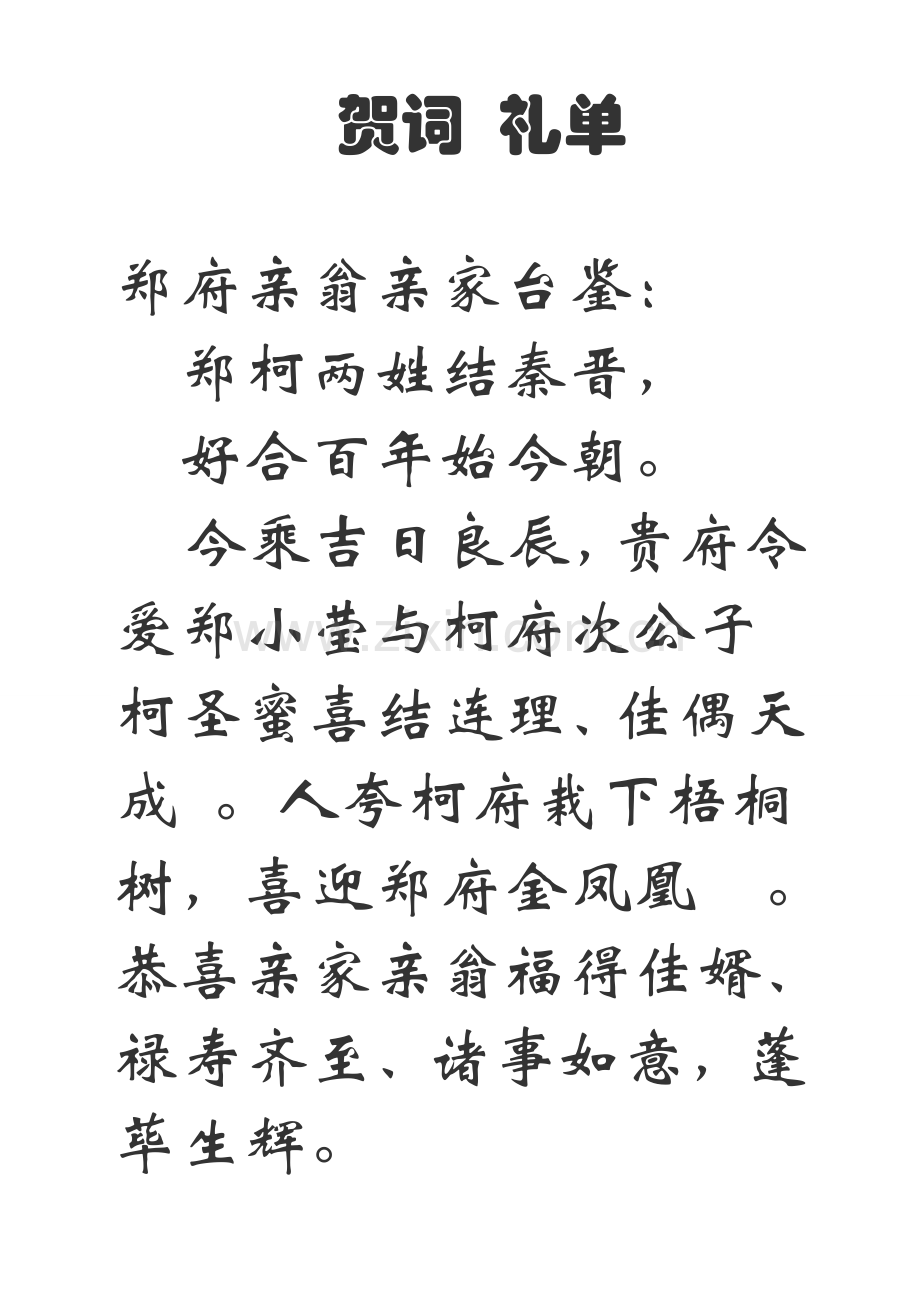 贺词 礼单
郑府亲翁亲家台鉴：
郑柯两姓结秦晋，
好合百年始今朝。
今乘吉日良辰，贵府令
爱郑小莹与柯府次公子
柯圣蜜喜结连理、佳偶天
成 。人夸柯府栽下梧桐
树，喜迎郑府金凤凰 。
恭喜亲家亲翁福得佳婿、
禄寿齐至、诸事如意，蓬
荜生辉。
www.zixin.com.cn